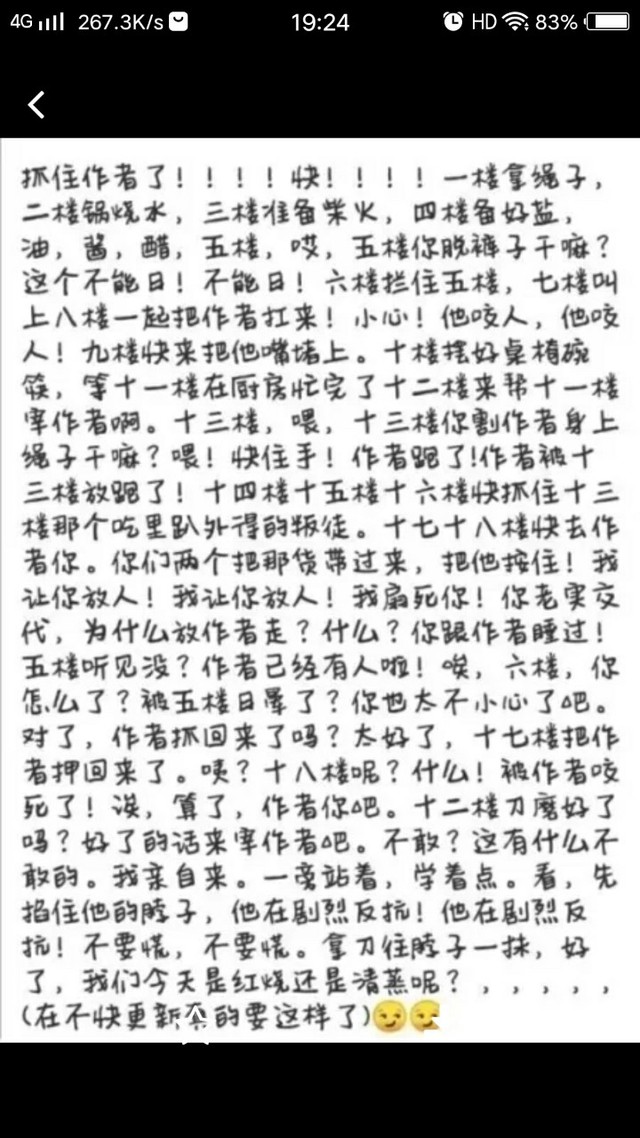 4G 267.3K/s 19:24 HD 83%
抓住作者了！！！！快！！！！一楼拿绳子，
二楼锅烧水，三楼准备柴火，四楼备好盐，
油，酱，醋，五楼，哎，五楼你脱裤子干嘛？
这个不能日！不能日！六楼拦住五楼，七楼叫
上八楼一起把作者扛来！小心！他咬人，他咬
人！九楼快来把他嘴堵上。十楼摆好桌椅碗
筷，等十一楼在厨房忙完了十二楼来帮十一楼
宰作者啊。十三楼，喂，十三楼你割作者身上
绳子干嘛？喂！快住手！作者跑了!作者被十
三楼放跑了！十四楼十五楼十六楼快抓住十三
楼那个吃里趴外得的叛徒。十七十八楼快去作
者你。你们两个把那货带过来，把他按住！我
让你放人！我让你放人！我扇死你！你老实交
代，为什么放作者走？什么？你跟作者睡过！
五楼听见没？作者已经有人啦！唉，六楼，你
怎么了？被五楼日晕了？你也太不小心了吧。
对了，作者抓回来了吗？太好了，十七楼把作
者押回来了。咦？十八楼呢？什么！被作者咬
死了！诶，算了，作者你吧。十二楼刀磨好了
吗？好了的话来宰作者吧。不敢？这有什么不
敢的。我亲自来。一旁站着，学着点。看，先
掐住他的脖子，他在剧烈反抗！他在剧烈反
抗！不要慌，不要慌。拿刀往脖子一抹，好
了，我们今天是红烧还是清蒸呢？，，，，，
(在不快更新 的要这样了)😏😏